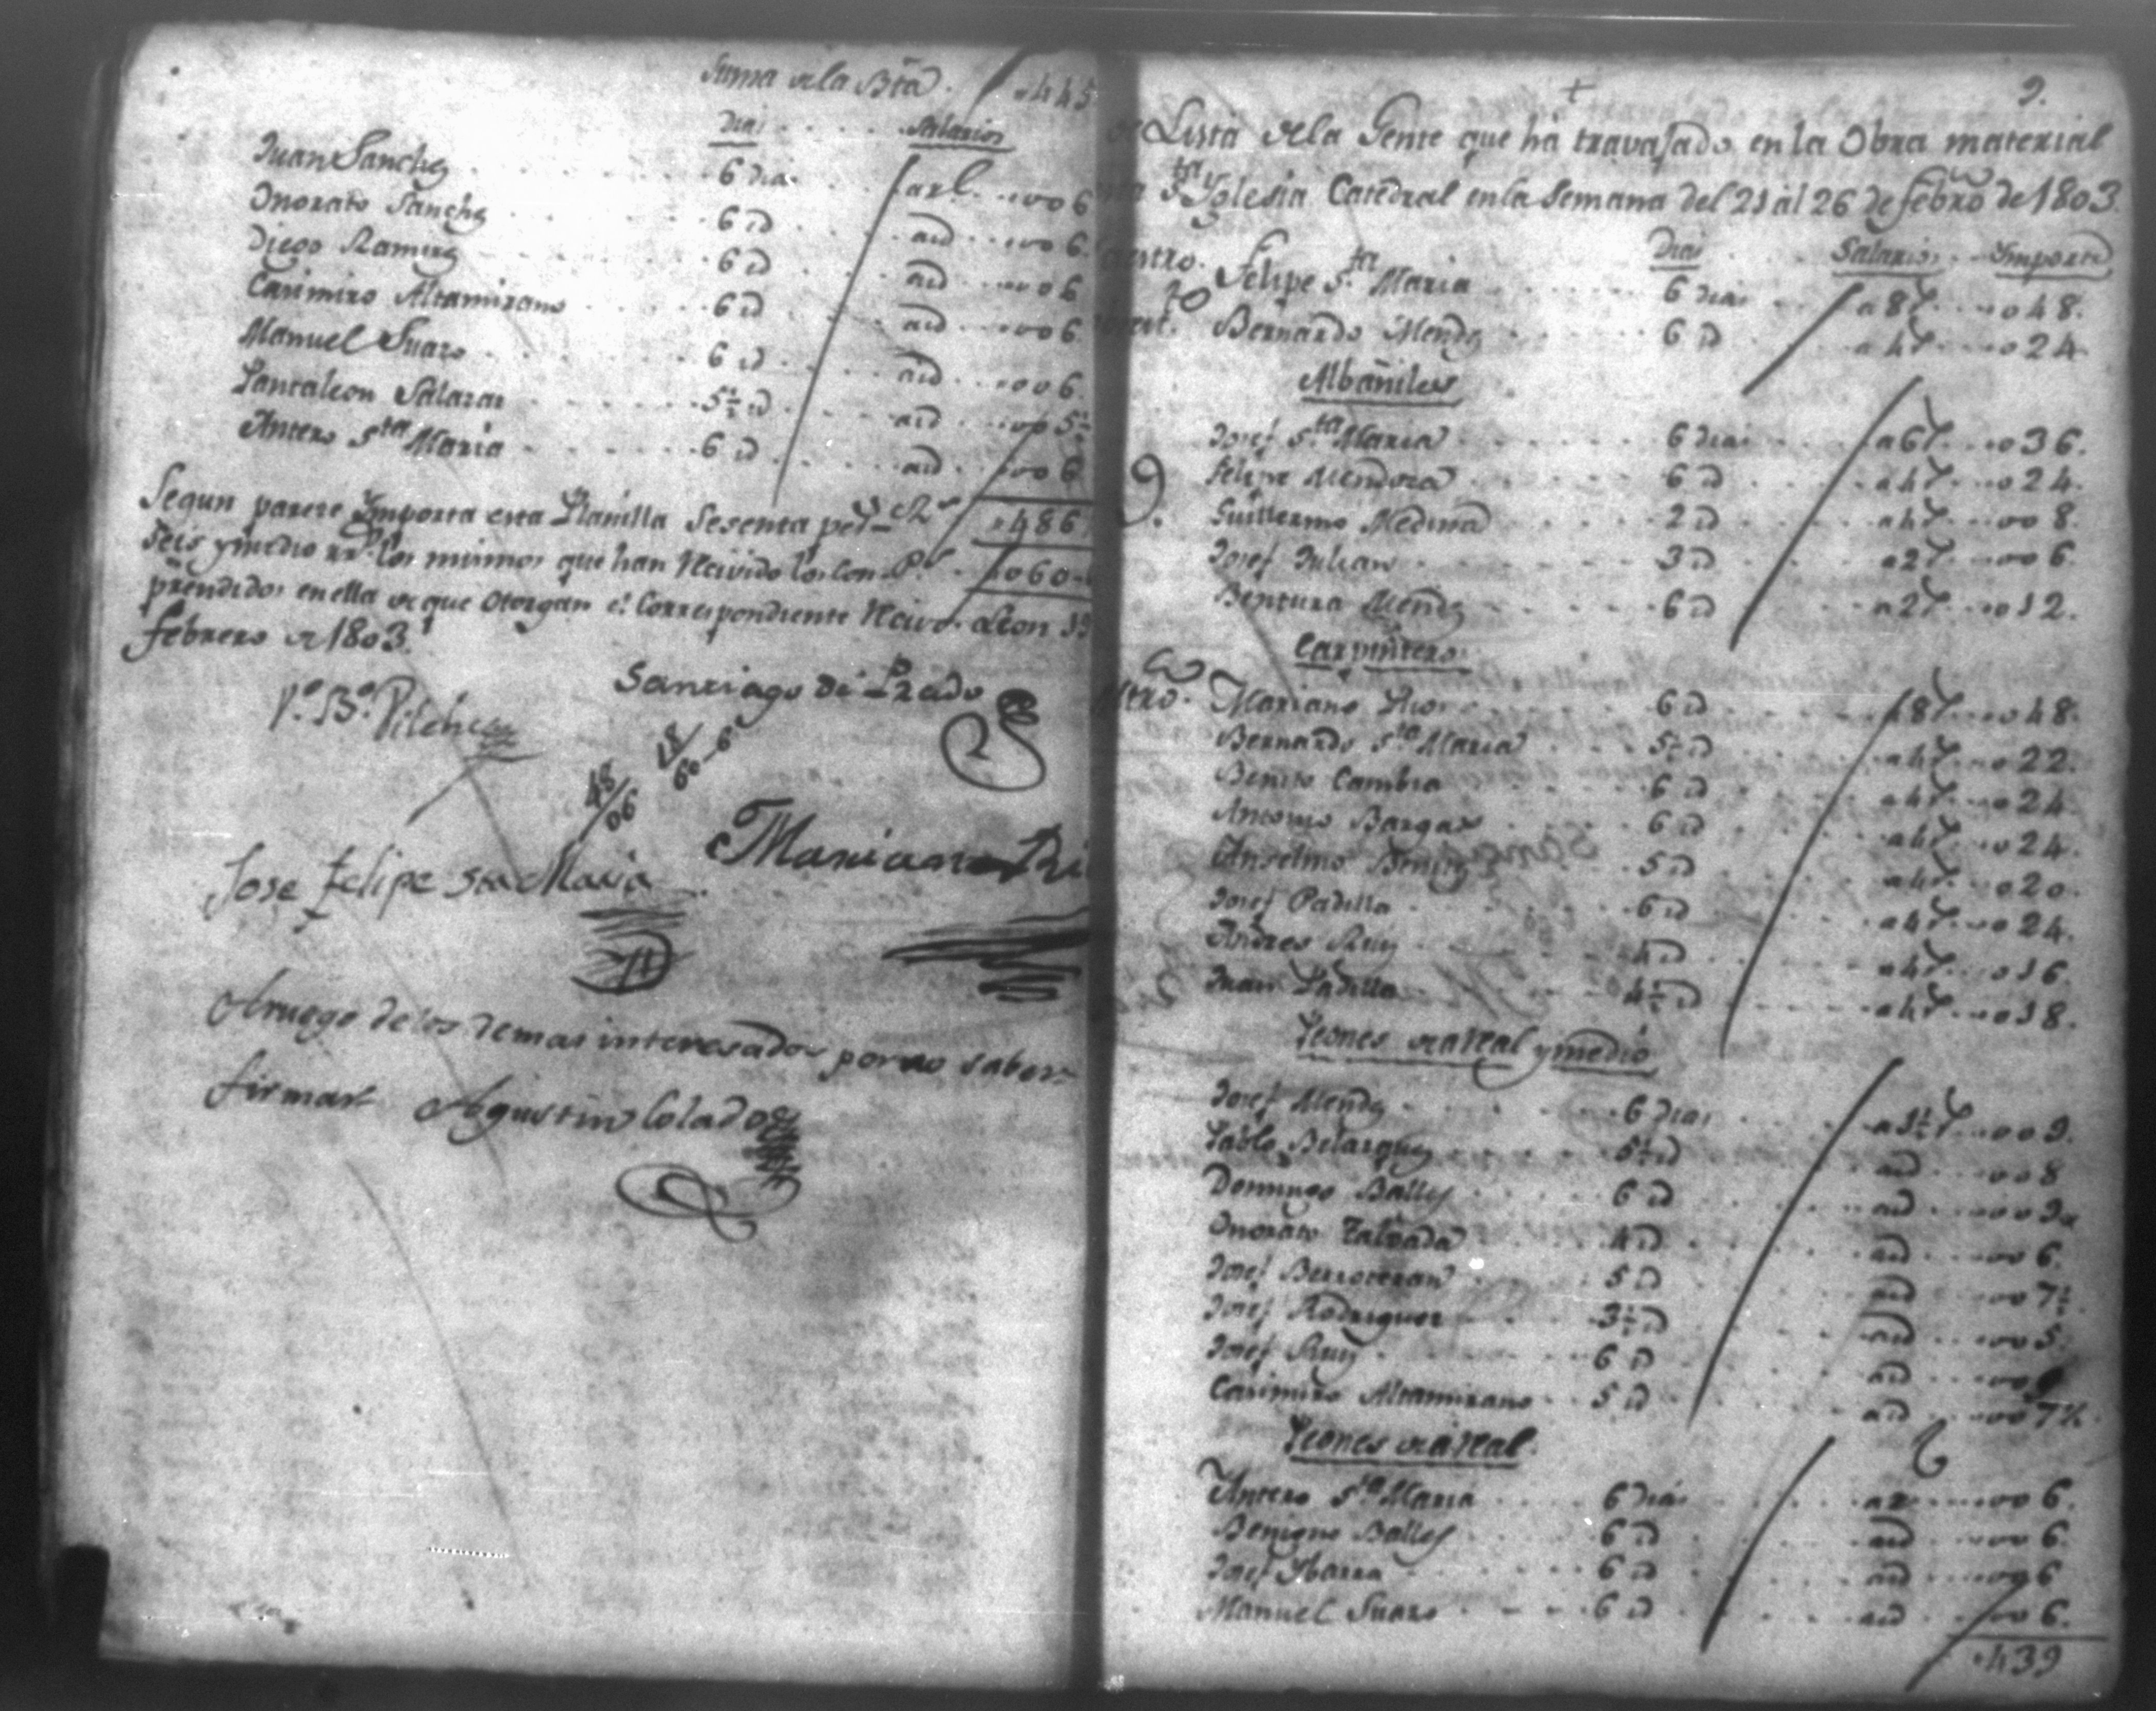 Suma de la Bta. 445
Dias Salarios
Juan Sanchz 6 dias a1 rl. 006
Onorato Sanchz 6 id aid 006
Diego Ramirz 6 id aid 006
Casimiro Altamirano 6 id aid 006
Manuel Suazo 6 id aid 006
Pantaleon Salazar 5½ id aid 005½
Antero Sta Maria 6 id aid 006
Segun parece Importa esta Planilla Sesenta pes 486
seis y medio rrs. los mismos que han Recivido los Com- Ps. 060
prendidos en ella de que otorgan el Correspondiente Recivo. Leon
febrero de 1803.
Vo. Bo. Vilches
Santiago de Prado
Jose Felipe Sta Maria
Mariano Ri
Aruego delos demas interesados por no saber
firmar Agustin Colado
9.
Lista dela Gente que há travajado en la Obra material
sta Yglesia Catedral en la Semana del 21 al 26 de febro de 1803.
Dias Salarios Importe
Felipe Sta Maria 6 dias a8 048.
Bernardo Mendz 6 id a4 024
Albañiles
Josef Sta Maria 6 dias a6 036.
Felipe Mendoza 6 id a4 024.
Guillermo Medina 2 id a4 008.
Josef Julian 3 id a2 006.
Bentura Mendz 6 id a2 012.
Carpinteros
Mariano Rios 6 id a8 048.
Bernardo Sta Maria 5½ id a4 022.
Benito Cambra 6 id a4 024
Antonio Bargas 6 id a4 024.
Anselmo Benitz 5 id a4 020.
Josef Padilla 6 id a4 024.
Andres Ruiz 4 id a4 016
Juan Padilla 4½ id a4 018.
Peones de a real y medio
Josef Mendz 6 dias a1½ 009.
Pablo Belasquez 5½ id aid 008
Domingo Balles 6 id aid 009
Onorato Talbada 4 id aid 006.
Josef Berroteran 5 id aid 007½.
Josef Rodriguez 3½ id aid 005.
Josef Ruiz 6 id aid 009
Casimiro Altamirano 5 id aid 007½.
Peones de a real.
Antero Sta Maria 6 dias a1 006.
Benigno Balles 6 id aid 006.
Josef Ybarra 6 id aid 006
Manuel Suazo 6 id aid 006.
439